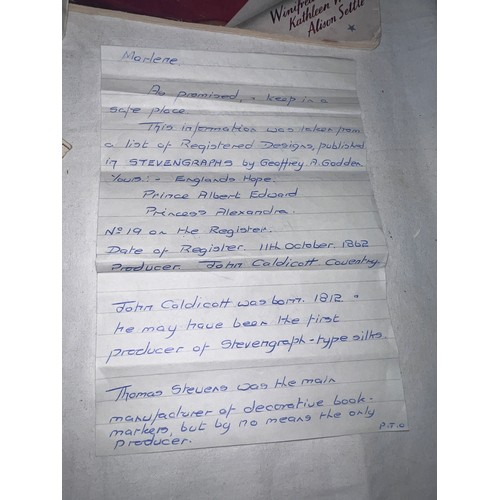 Winifred
Kathleen
Alison Settle
Marlene
As promised, keep in a
safe place.
This information was taken from
a list of Registered Designs, published
in STEVENGRAPHS by Geoffrey A. Godden
Yours:- Englands Hope.
Prince Albert Edward
Princess Alexandra.
No 19 on the Register.
Date of Register. 11th October. 1862
Producer. John Caldicott Coventry
John Caldicott was born. 1812.
he may have been the first
producer of Stevengraph-type silks.
Thomas Stevens was the main
manufacturer of decorative book-
markers, but by no means the only
producer.
P.T.O